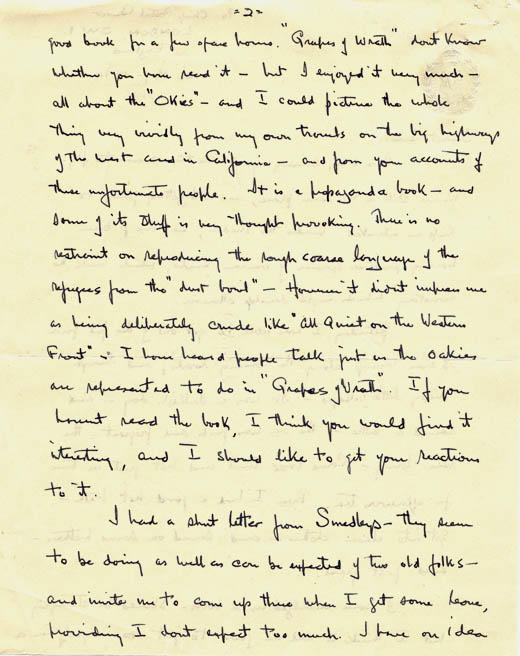 -2-
good book for a few spare hours. "Grapes of Wrath" don't know
whether you have read it - but I enjoyed it very much -
all about the "Okies" - and I could picture the whole
thing very vividly from my own travels on the big highways
of the west and in California - and from your accounts of
these unfortunate people. It is a propaganda book - and
some of its stuff is very thought provoking. There is no
restraint on reproducing the rough coarse language of the
refugees from the "dust bowl" - However it didn't impress me
as being deliberately crude like "All Quiet on the Western
Front" - I have heard people talk just as the Oakies
are represented to do in "Grapes of Wrath" If you
haven't read the book, I think you would find it
interesting, and I should like to get your reactions
to it.
I had a short letter from Smedleys - They seem
to be doing as well as can be expected of two old folks -
and invite me to come up there when I get some leave,
providing I dont expect too much. I have an idea